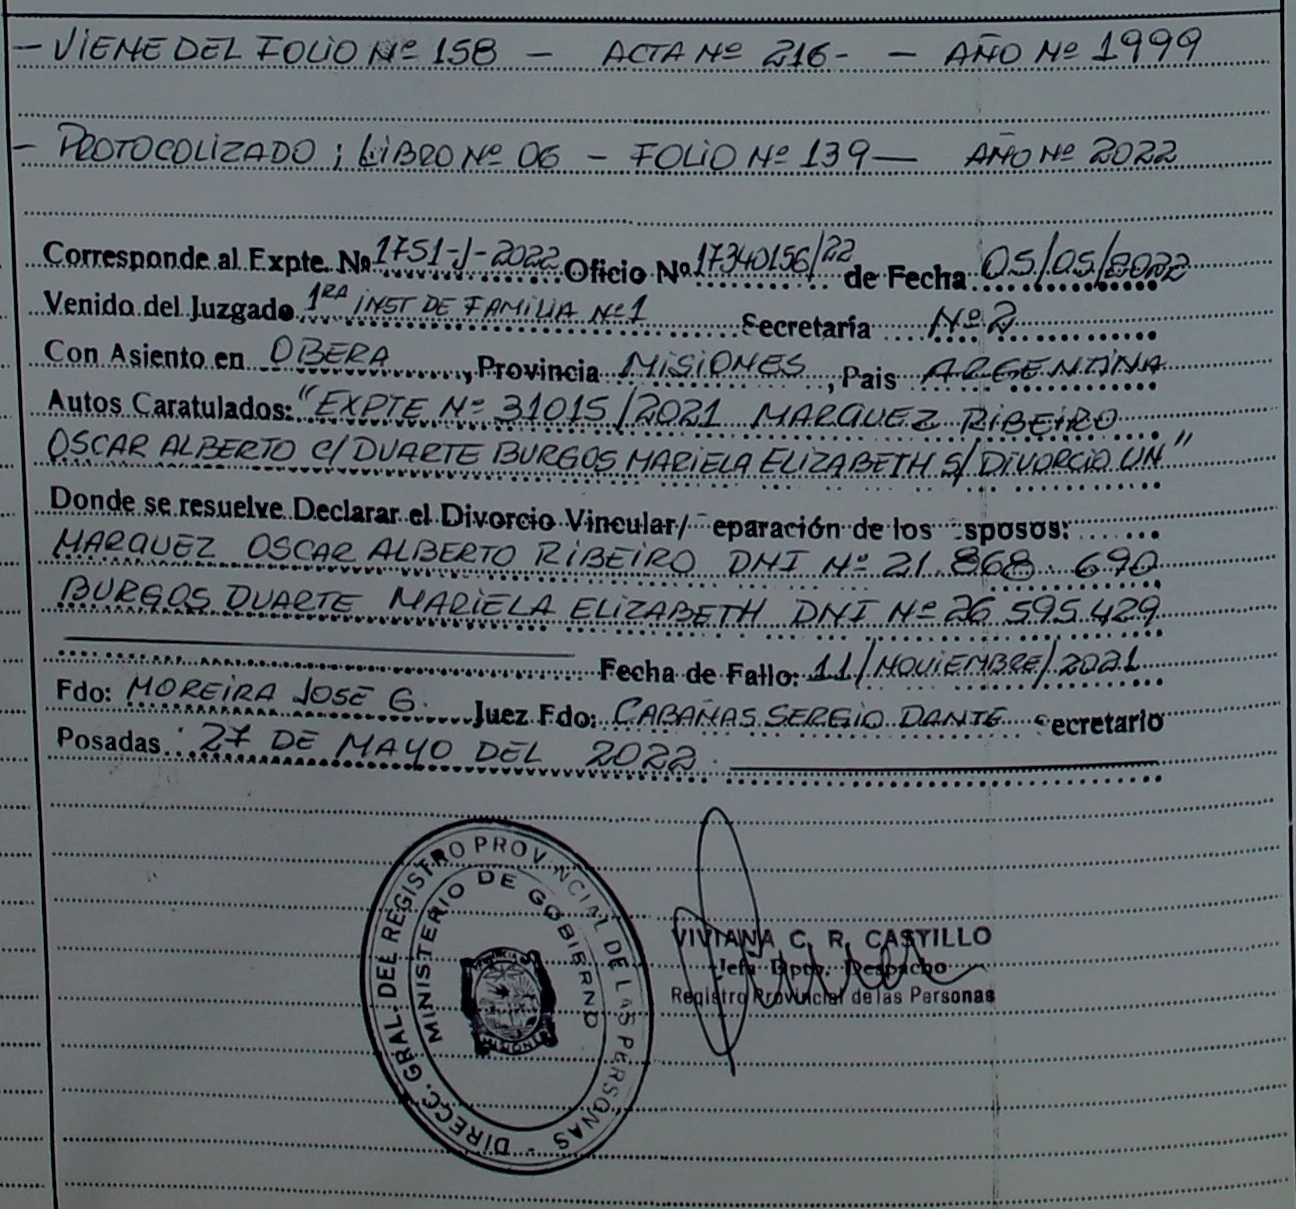 - VIENE DEL FOLIO Nº 158 - ACTA Nº 216- - AÑO Nº 1999
- PROTOCOLIZADO ; LIBRO Nº 06 - FOLIO Nº 139 - AÑO Nº 2022
Corresponde al Expte. Nº 1751-J-2022 Oficio Nº 17340156/22 de Fecha 05/05/2022
Venido del Juzgado 1RA INST DE FAMILIA Nº1 Secretaría Nº 2
Con Asiento en OBERA, Provincia MISIONES, Pais ARGENTINA
Autos Caratulados: "EXPTE Nº 31015/2021 MARQUEZ RIBEIRO
OSCAR ALBERTO C/ DUARTE BURGOS MARIELA ELIZABETH S/ DIVORCIO UN"
Donde se resuelve Declarar el Divorcio Vincular/ eparación de los sposos:
MARQUEZ OSCAR ALBERTO RIBEIRO DNI Nº 21.868.690
BURGOS DUARTE MARIELA ELIZABETH DNI Nº 26.595.429
Fecha de Fallo: 11/NOVIEMBRE/2021
Fdo: MOREIRA JOSE G. Juez Fdo: CABAÑAS SERGIO DANTE Secretario
Posadas 27 DE MAYO DEL 2022.
DIRECC. GRAL. DEL REGISTRO PROVINCIAL DE LAS PERSONAS -
MINISTERIO DE GOBIERNO
VIVIANA C. R. CASTILLO
Jefa Dpto. Despacho
Registro Provincial de las Personas